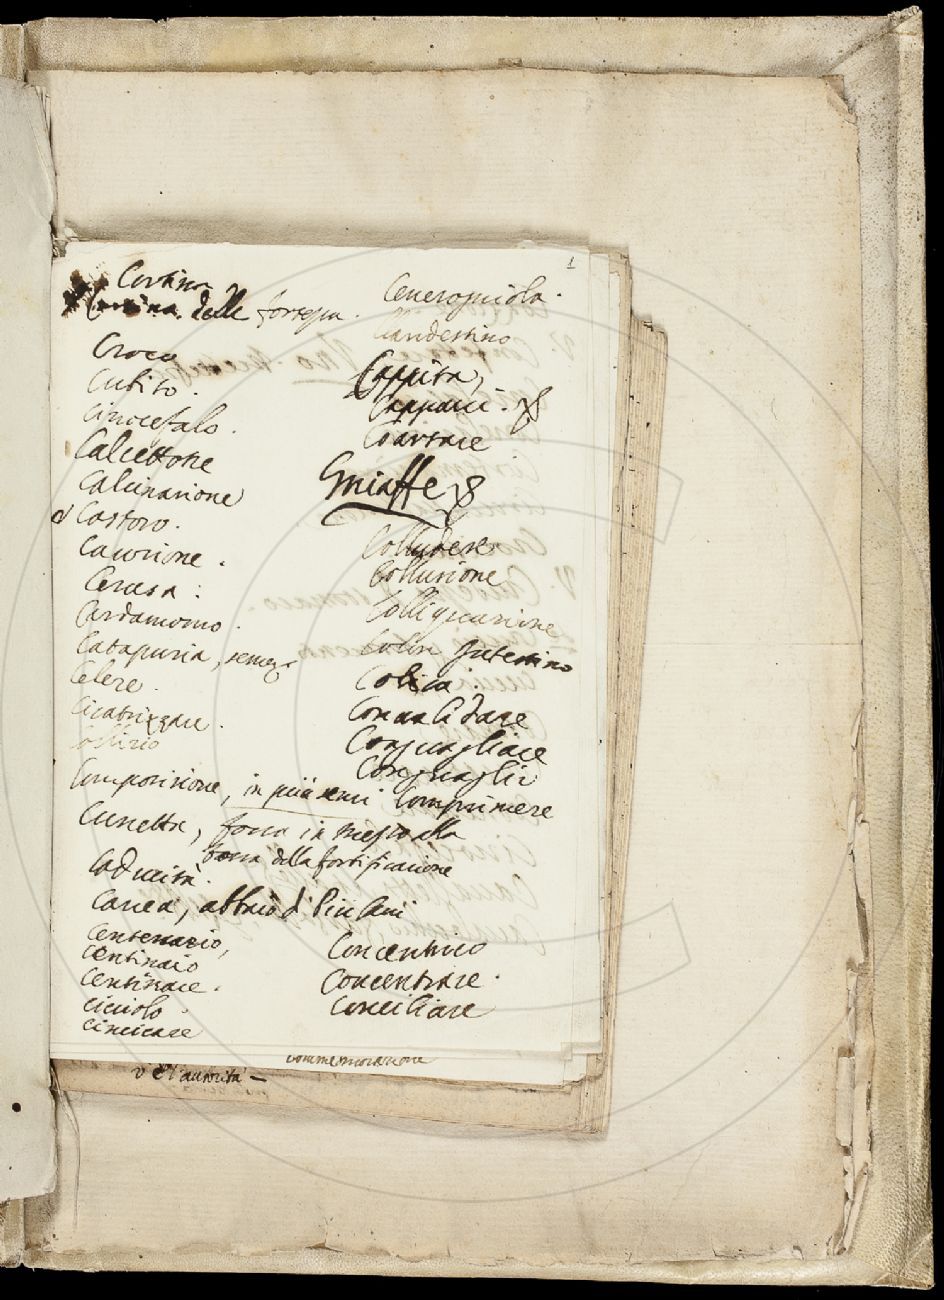 1
Cortina
Cortina delle fortezza.
Croco
Cubito.
Cinocefalo.
Calcettone
Calcinazione
Castoro.
Cauzione.
Cerusa :
Cardamomo.
Catapuzia, seme
Celere.
Cicatrizzare.
Collirio
Composizione, in più sensi
Cunetta, fossa in mezzo alla
fossa della fortificazione
Caducità.
Canea, abbaio di più cani
Centenario,
Centinaio
Centinare.
Cicciolo.
Cincicare
Cenerognola.
Clandestino
Cappita,
Capperi.
Coartare
Gniaffe
Colludere
Collusione
Colliquazione
Colon Intestino
Colica.
Consolidare
Conguagliare
Conguaglio
Comprimere
Concentrico
Concentrare.
Conciliare
commemorazione
v è l'autorità –